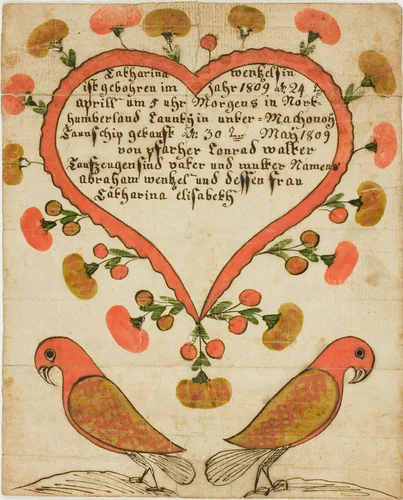 Catharina wentzelsin
ist gebohren im Jahr 1809 den 24 ten
aprill um 5 uhr Morgens in Nort
humberland Caunty in unter-Machonoy
Taunschip getauft den 30 ten May 1809
von pfarher Conrad walter
Taufzeugen sind vater und mutter Namens
abraham wentzel und dessen frau
Catharina elisabeth